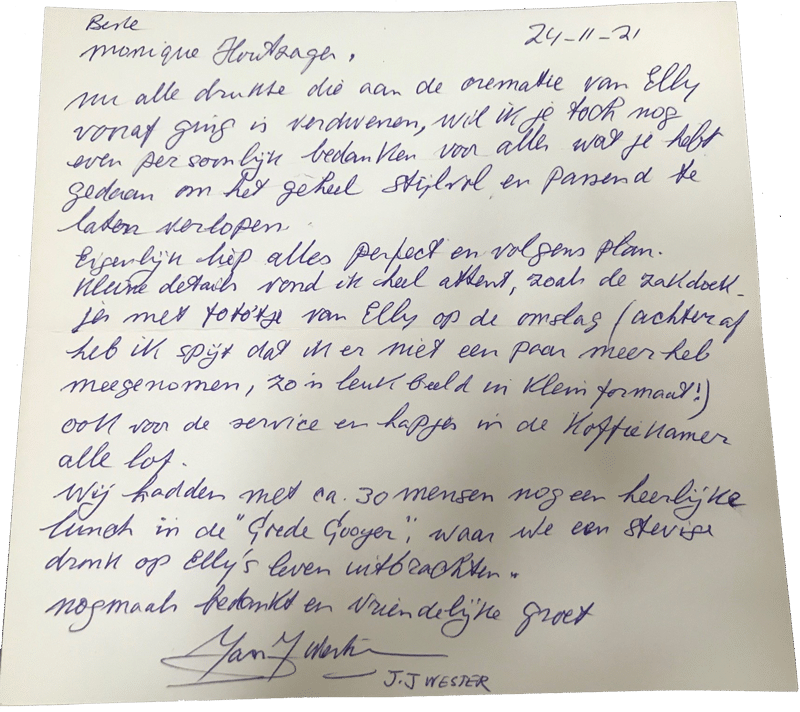 Beste
24-11-21
Monique Houtzager,
nu alle drukte die aan de crematie van Elly
vooraf ging is verdwenen, wil ik je toch nog
even persoonlijk bedanken voor alles wat je hebt
gedaan om het geheel stijlvol en passend te
laten verlopen.
Eigenlijk liep alles perfect en volgens plan.
Kleine details vond ik heel attent, zoals de zakdoek-
jes met foto'tje van Elly op de omslag (achteraf
heb ik spijt dat ik er niet een paar meer heb
meegenomen, zo'n leuk beeld in klein formaat!)
ook voor de service en hapjes in de Koffiekamer
alle lof.
Wij hadden met ca. 30 mensen nog een heerlijke
lunch in de "Grede Gooyer", waar we een stevige
dronk op Elly's leven uitbrachten.
nogmaals bedankt en vriendelijke groet
Jan J Wester
J.J WESTER